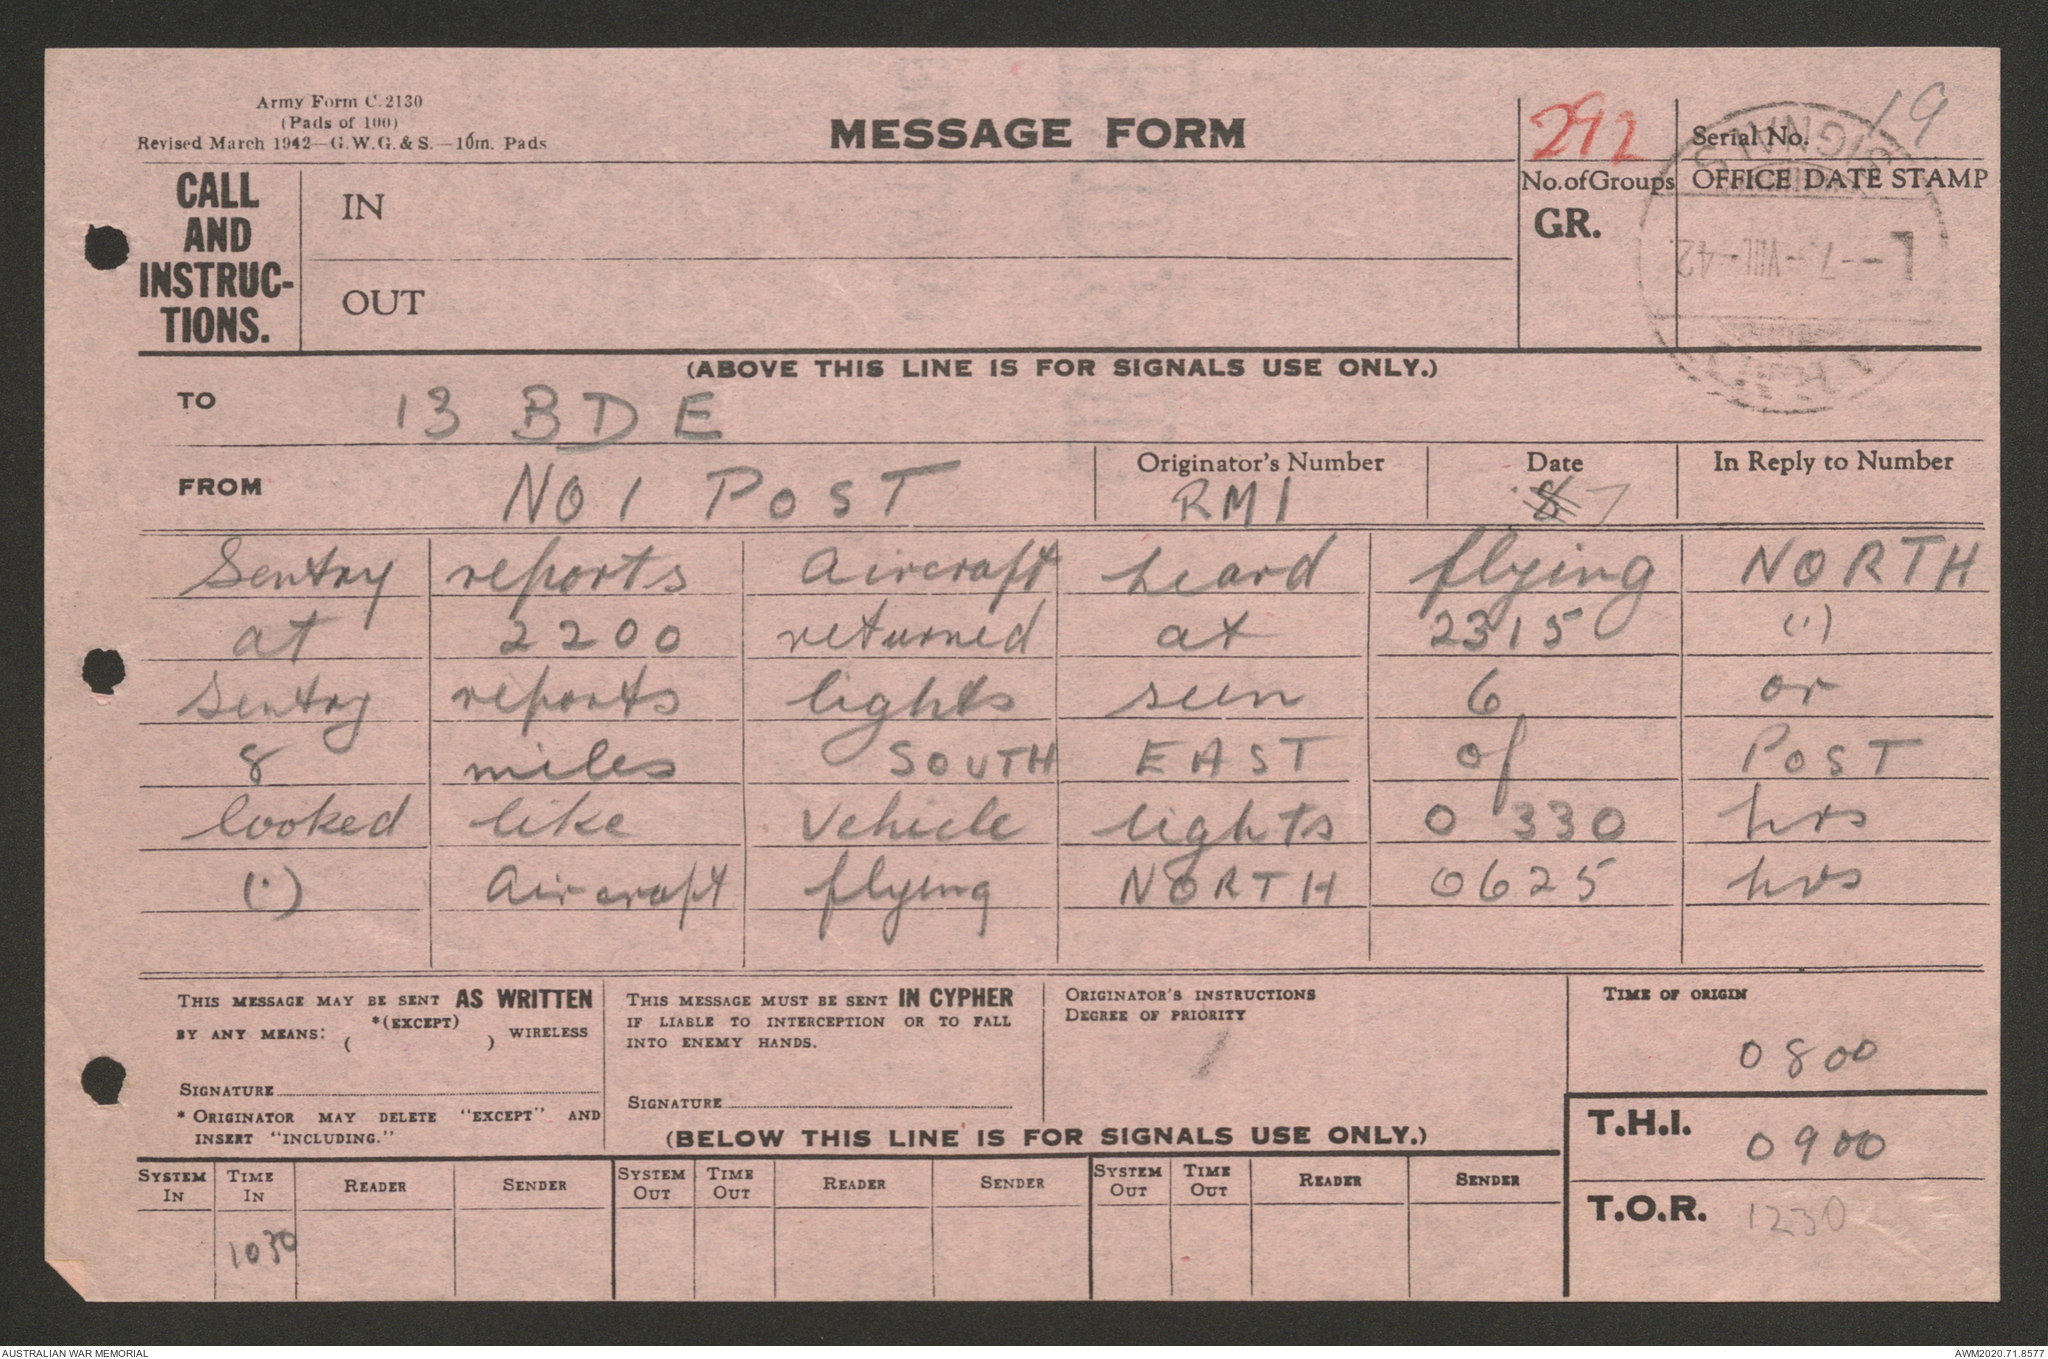 Army Form C.2130
(Pads of 100)
Revised March 1942—G.W.G.& S.—10m. Pads
MESSAGE FORM
292
Serial No. 19
No. of Groups
GR.
OFFICE DATE STAMP
SIGNALS
7 - VIII - 42
CALL AND INSTRUC-TIONS.
IN
OUT
(ABOVE THIS LINE IS FOR SIGNALS USE ONLY.)
TO 13 BDE
FROM NO 1 POST
Originator's Number RM1
Date 7
In Reply to Number
Sentry reports Aircraft heard flying NORTH
at 2200 returned at 2315 (.)
Sentry reports lights seen 6 or
8 miles SOUTH EAST of POST
looked like Vehicle lights 0330 hrs
(.) Aircraft flying NORTH 0625 hrs
THIS MESSAGE MAY BE SENT AS WRITTEN
BY ANY MEANS: *(EXCEPT) ( ) WIRELESS
SIGNATURE
* ORIGINATOR MAY DELETE "EXCEPT" AND
INSERT "INCLUDING."
THIS MESSAGE MUST BE SENT IN CYPHER
IF LIABLE TO INTERCEPTION OR TO FALL
INTO ENEMY HANDS.
SIGNATURE
ORIGINATOR'S INSTRUCTIONS
DEGREE OF PRIORITY
TIME OF ORIGIN
0800
(BELOW THIS LINE IS FOR SIGNALS USE ONLY.)
T.H.I. 0900
T.O.R. 1230
SYSTEM IN TIME IN READER SENDER SYSTEM OUT TIME OUT READER SENDER SYSTEM OUT TIME OUT READER SENDER
1030
AUSTRALIAN WAR MEMORIAL
AWM2020.71.8577